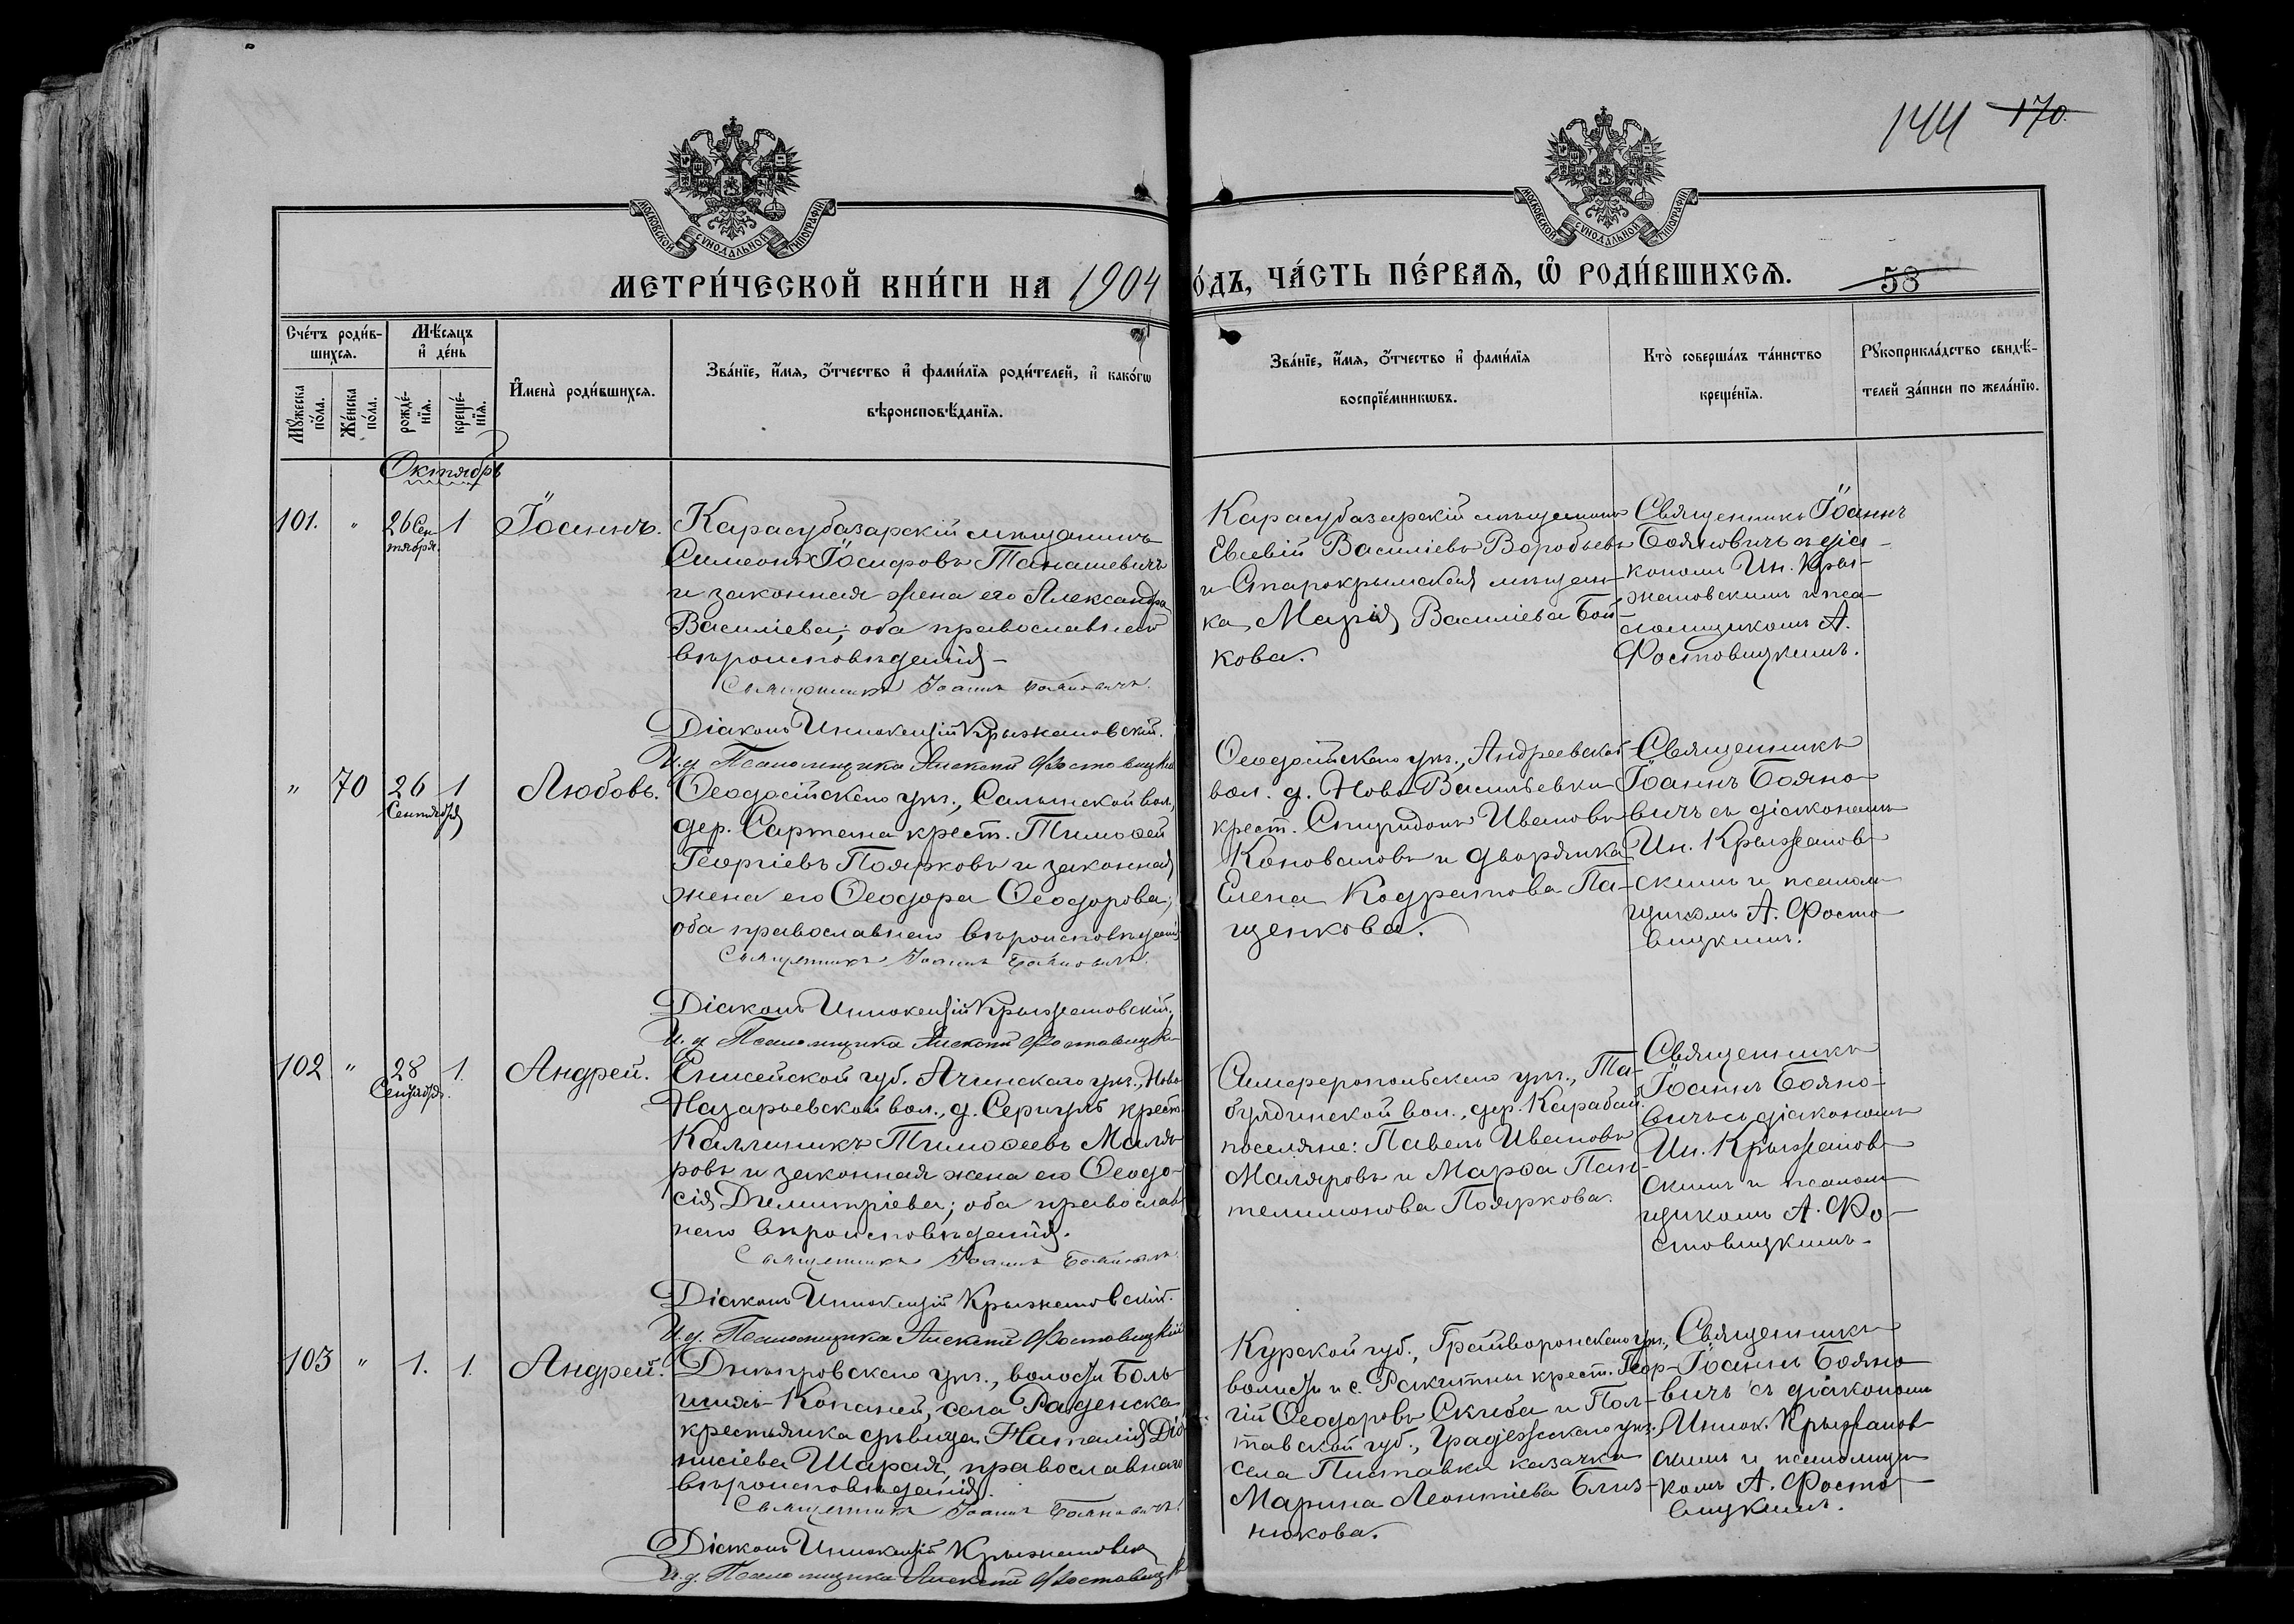 144 170.
МОСКОВСКОЙ СѴНОДАЛЬНОЙ ТИПОГРАФІИ
МОСКОВСКОЙ СѴНОДАЛЬНОЙ ТИПОГРАФІИ
МЕТРИ́ЧЕСКОЙ КНИ́ГИ НА 1904
О́ДЪ, ЧА́СТЬ ПЕ́РВАѦ, Ѡ РОДИ́ВШИХСѦ. 58
Сче́тъ роди́в-
шихсѧ.
Мꙋжеска по́ла.
Же́нска по́ла.
Мѣ́сѧцъ
и҆ де́нь
рожде́-
нїѧ.
креще́-
нїѧ.
И҆мена̀ роди́вшихсѧ.
Зва́нїе, и҆́мѧ, ѻ҆́тчество и҆ фами́лїѧ роди́телей, и҆ како́гѡ
вѣроисповѣ́данїѧ.
Зва́нїе, и҆́мѧ, ѻ҆́тчество и҆ фами́лїѧ
воспрїе́мникѡвъ.
Кто̀ соверша́лъ та́инство
креще́нїѧ.
Рꙋкоприкла́дство свидѣ́-
телей за́писи по жела́нїю.
Октябрь
101. " 26 Сен-
тября. 1 Іоаннъ.
Карасубазарскій мѣщанинъ
Симеонъ Іосифовъ Танашевичъ
и законная жена его Александра
Василіева; оба православнаго
вѣроисповѣданія –
Священникъ Іоаннъ Бояновичъ.
Діаконъ Иннокентій Крыжановскій.
И.д. Псаломщика Алексѣй Фостовицкій
Карасубазарскій мѣщанинъ
Евсевій Василіевъ Воробьевъ
и Старокрымская мѣщан-
ка Марія Василіева Бой-
кова.
Священникъ Іоаннъ
Бояновичъ съ діа-
кономъ Ин. Кры-
жановскимъ и пса-
ломщикомъ А.
Фостовицкимъ.
" 70 26
Сентября 1 Любовь.
Ѳеодосійскаго уѣз., Салынской вол.,
дер. Сартана крест. Тимоѳей
Георгіевъ Поярковъ и законная
жена его Ѳеодора Ѳеодорова;
оба православнаго вѣроисповѣданія
Священникъ Іоаннъ Бояновичъ.
Діаконъ Иннокентій Крыжановскій.
И.д. Псаломщика Алексѣй Фостовицкій
Ѳеодосійскаго уѣз., Андреевской
вол. д. Ново Васильевки
крест. Спиридонъ Ивановъ
Коноваловъ и дворянка
Елена Кодратова Па-
щенкова.
Священникъ
Іоаннъ Бояно-
вичъ съ діакономъ
Ин. Крыжанов-
скимъ и псалом-
щикомъ А. Фосто-
вицкимъ.
102 " 28
Сентября. 1. Андрей.
Енисейской губ. Ачинскаго уѣз., Ново
Назарьевской вол., д. Сергуль крест.
Каллиникъ Тимоѳеевъ Маля-
ровъ и законная жена его Ѳеодо-
сія Димитріева; оба православ-
наго вѣроисповѣданія.
Священникъ Іоаннъ Бояновичъ.
Діаконъ Иннокентій Крыжановскій.
И.д. Псаломщика Алексѣй Фостовицкій
Симферопольскаго уѣз., Та-
булдинской вол., дер. Карабай
поселяне: Павелъ Ивановъ
Маляровъ и Марѳа Пан-
телимонова Пояркова.
Священникъ
Іоаннъ Бояно-
вичъ съ діакономъ
Ин. Крыжанов-
скимъ и псалом-
щикомъ А. Фо-
стовицкимъ.
103 " 1. 1. Андрей.
Днѣпровскаго уѣз., волости Боль-
шихъ-Копаней, села Раденска
крестьянка дѣвица Наталія Діо-
нисіева Шарая, православнаго
вѣроисповѣданія.
Священникъ Іоаннъ Бояновичъ.
Діаконъ Иннокентій Крыжановск
И.д. Псаломщика Алексѣй Фостовицк
Курской губ., Грайворонскаго уѣз.,
волости и с. Ракитны крест. Геор-
гій Ѳеодоровъ Скиба и Пол-
тавской губ., Градижскаго уѣз.
села Пиставки казачка
Марина Леонтіева Близ-
нюкова.
Священникъ
Іоаннъ Бояно-
вичъ съ діакономъ
Иннок. Крыжанов-
скимъ и псаломщи-
комъ А. Фосто-
вицкимъ.